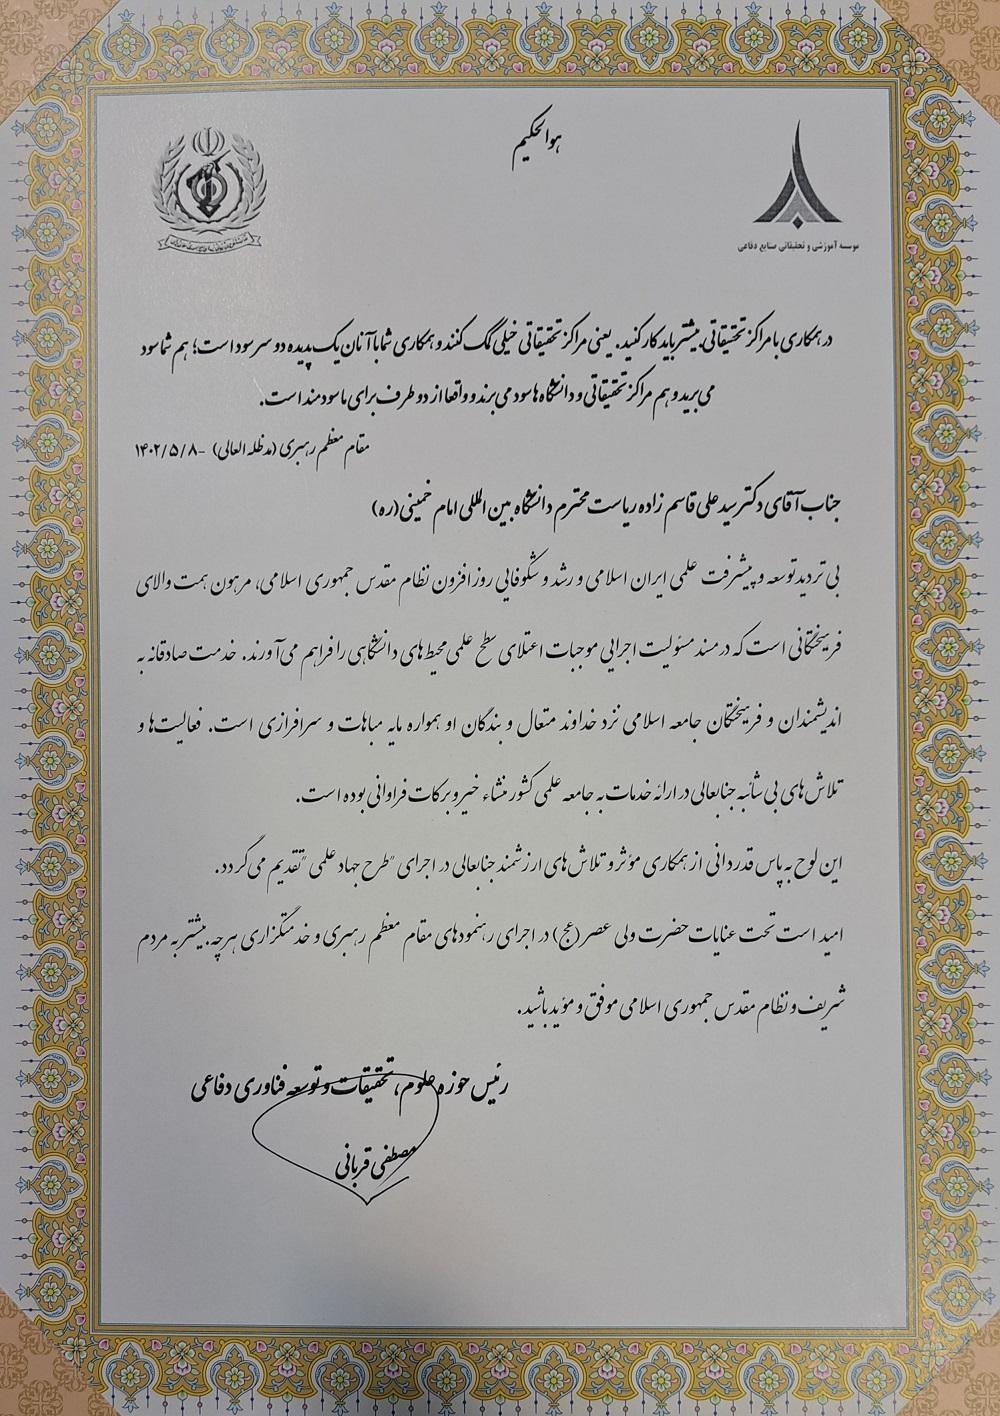 هوالحکیم
موسسه آموزشی و تحقیقاتی صنایع دفاعی
در همکاری با مراکز تحقیقاتی بیشتر باید کار کنید. یعنی مراکز تحقیقاتی خیلی کمک کنند و همکاری شما با آنان یک پدیده دو سر سود است؛ هم شما سود
می برید و هم مراکز تحقیقاتی و دانشگاه ها سود می برند و واقعا از دو طرف برای ما سودمند است.
مقام معظم رهبری (مدظله العالی) -۱۴۰۲/۵/۸
جناب آقای دکتر سید علی قاسم زاده ریاست محترم دانشگاه بین المللی امام خمینی (ره)
بی تردید توسعه و پیشرفت علمی ایران اسلامی و رشد و شکوفایی روز افزون نظام مقدس جمهوری اسلامی، مرهون همت والای
فریختگانی است که در مسند مسئولیت اجرایی موجبات اعتلای سطح علمی محیط های دانشگاهی را فراهم می آورند. خدمت صادقانه به
اندیشمندان و فریختگان جامعه اسلامی نزد خداوند متعال و بندگان او همواره مایه مباهات و سرافرازی است. فعالیت ها و
تلاش های بی شائبه جنابعالی در ارائه خدمات به جامعه علمی کشور منشاء خیر و برکات فراوانی بوده است.
این لوح به پاس قدردانی از همکاری مؤثر و تلاش های ارزشمند جنابعالی در اجرای "طرح جهاد علمی" تقدیم می گردد.
امید است تحت عنایات حضرت ولی عصر (عج) در اجرای رهنمودهای مقام معظم رهبری و خدمتگزاری هرچه بیشتر به مردم
شریف و نظام مقدس جمهوری اسلامی موفق و مؤید باشید.
رئیس حوزه علوم، تحقیقات و توسعه فناوری دفاعی
مصطفی قربانی